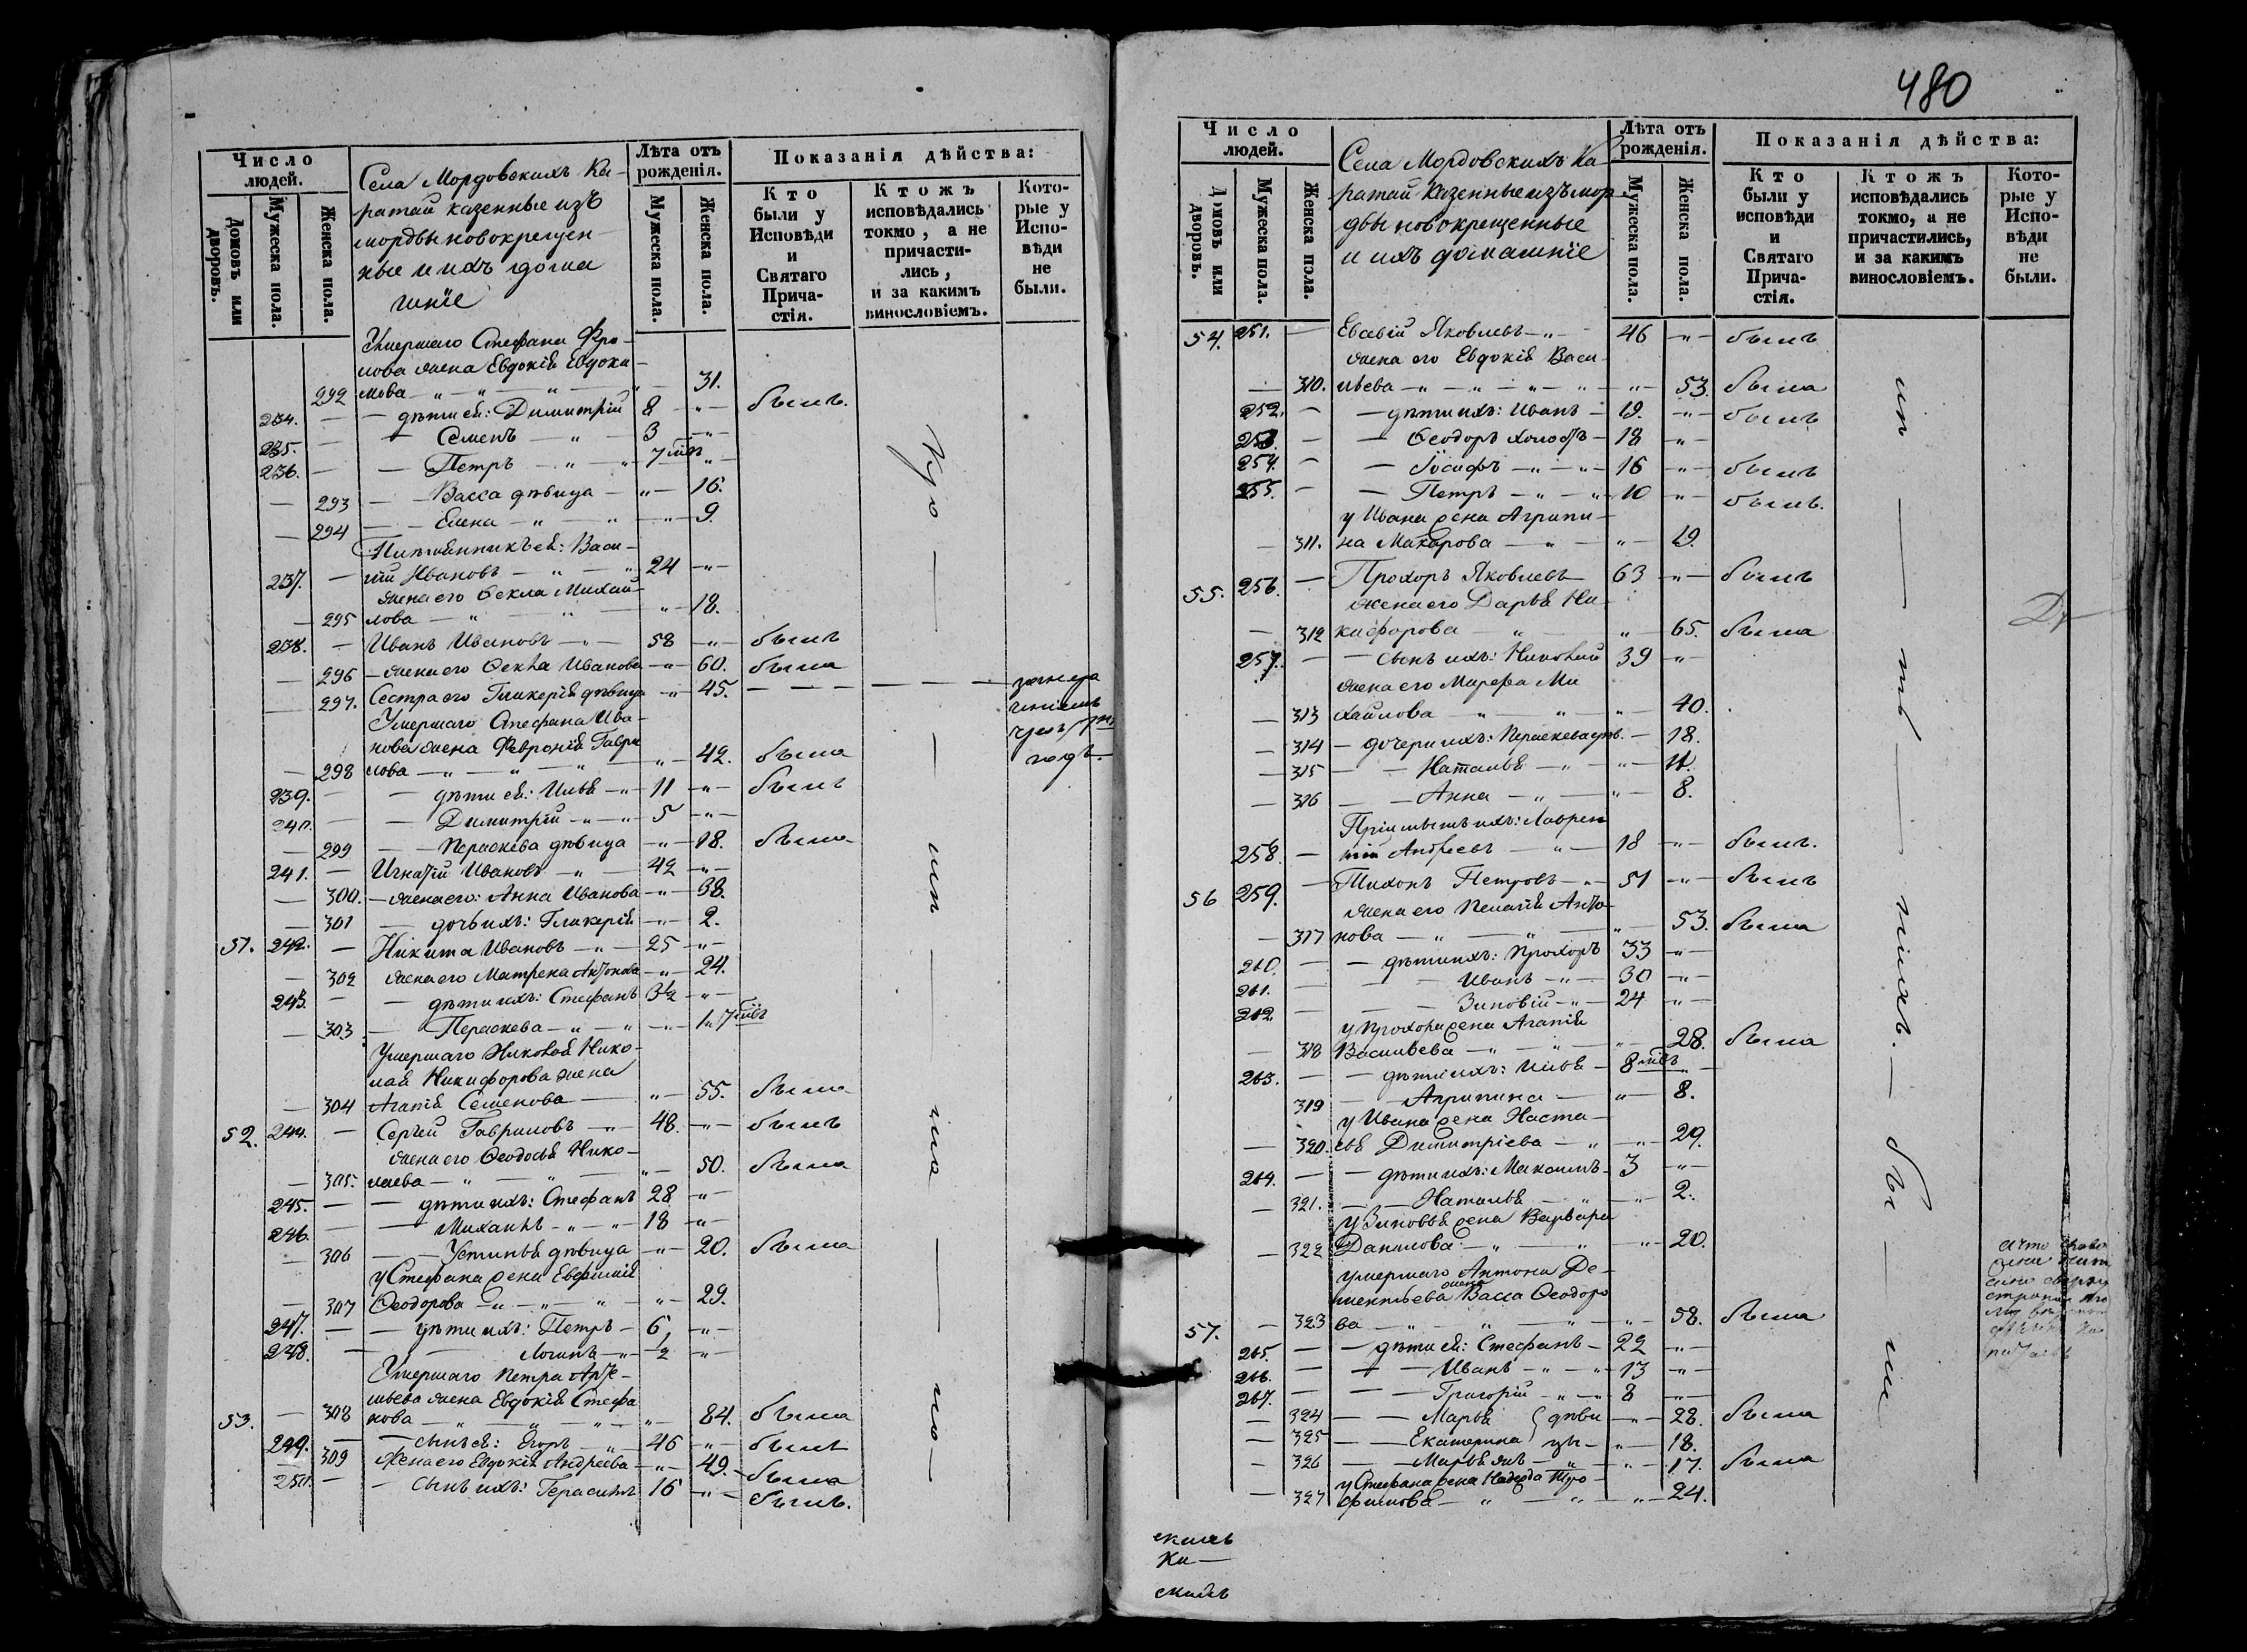 480
Число людей.
Домовъ или дворовъ.
Мужеска пола.
Женска пола.
Села Мордовскихъ Ка-
ратай казенные изъ
мордвы новокрещен-
ные и ихъ домаш
ніе
Лѣта отъ рожденія.
Мужеска пола.
Женска пола.
Показанія дѣйства:
Кто были у Исповѣди и Святаго Прича-стія.
Ктожъ исповѣдались токмо, а не причасти-лись, и за какимъ винословіемъ.
Кото-рые у Испо-вѣди не были.
Умершаго Стефана Фро-
лова жена Евдокія Евдоки
292 мова — „ — „ — „ — 31.
234. — — дѣти ея: Димитрій 8 — „ — былъ.
235. — — Семенъ — „ — 3 — „ —
236. — — Петръ — „ — „ — 7 мѣс — „ —
— 293 — — Васса дѣвица — „ — 16.
— 294 — — Елена — „ — „ — „ — 9.
Племянникъ ея: Васи-
237. — лій Ивановъ — „ — „ — 24 — „ —
жена его Ѳекла Михай-
— 295 лова — „ — „ — „ — 18.
238. — Иванъ Ивановъ — „ — 58 — „ — былъ
— 296 — жена его Ѳекла Иванова — „ — 60. была
— 297. Сестра его Гликерія дѣвица — „ — 45. — — — — — —
Умершаго Стефана Ива-
нова жена Февронія Гаври
— 298 лова — „ — „ — „ — „ — 42. была
годъ.
239. — — дѣти ея: Илья — „ — 11 — „ — былъ
240. — — Димитрій — „ — „ — 5 — „ —
— 299 — — Параскева дѣвица — „ — 18. была
241. — Игнатій Ивановъ — „ — 42 — „ —
— 300. — жена его: Анна Иванова — „ — 38.
— 301 — дочь ихъ: Гликерія — „ — 2.
51. 242. — Никита Ивановъ — „ — 25 — „ —
— 302 жена его Матрена Антонова — „ — 24.
243. — — дѣти ихъ: Стефанъ 3½ — „ —
— 303 — Параскева — „ — „ — „ — 1„ 7 мѣс
Умершаго Николая Нико-
лая Никифорова жена
— 304 Агапія Семенова — „ — 55. была
52. 244. — Сергѣй Гавриловъ — „ — 48. — „ — былъ
жена его Ѳеодосья Нико-
— 305. лаева — „ — „ — „ — 50. была
245. — — дѣти ихъ: Стефанъ 28 — „ —
246. — — Михаилъ — „ — „ — 18 — „ —
— 306 — — Устинья дѣвица — „ — 20. была
у Стефана жена Евфимія
— 307 Ѳеодорова — „ — „ — „ — „ — 29.
247. — — дѣти ихъ: Петръ — 6 — „ —
248. — — Логинъ — „ — 2 — „ —
Умершаго Петра Арте-
мьева жена Евдокія Стефа
53. — 308 нова — „ — „ — „ — „ — 84. была
249. — — сынъ ея: Егоръ — „ — 46 — „ — былъ
— 309 Жена его Евдокія Андреева — „ — 49. — была
250. — — сынъ ихъ: Герасимъ 16 — „ — былъ.
Число людей.
Домовъ или дворовъ.
Мужеска пола.
Женска пола.
Села Мордовскихъ Ка
ратай казенные изъ мор
двы новокрещенные
и ихъ домашніе
Лѣта отъ рожденія.
Мужеска пола.
Женска пола.
Показанія дѣйства:
Кто были у исповѣди и Святаго Прича-стія.
Ктожъ исповѣдались токмо, а не причастились, и за какимъ винословіемъ.
Кото-рые у Испо-вѣди не были.
54. 251. — Евсевій Яковлевъ — „ — 46 — „ — былъ
жена его Евдокія Васи-
— 310. льева — „ — „ — „ — „ — „ — 53. была
252. — — дѣти ихъ: Иванъ — 19. — „ — былъ
253. — — Ѳеодоръ холостъ — 18 — „ —
254. — — Іосифъ — „ — „ — 16 — „ — былъ
255. — — Петръ — „ — „ — 10 — „ — былъ.
у Ивана жена Агрипи-
— 311. на Макарова — „ — „ — 19.
55. 256. — Прохоръ Яковлевъ — 63 — „ — былъ
жена его Дарья Ни-
— 312 кифорова — „ — „ — 65. была
257. — — сынъ ихъ: Николай 39 — „ —
жена его Марфа Ми
— 313 хайлова — „ — „ — „ — 40.
— 314 — дочери ихъ: Параскева дѣв. — 18.
— 315 — — Наталья — „ — „ — 11.
— 316 — — Анна — „ — „ — 8.
Пріимышъ ихъ: Лаврен
258. — тій Андреевъ — „ — 18 — „ — былъ.
56 259. — Тихонъ Петровъ — „ — 51 — „ — былъ
жена его Пелагія Анто-
— 317 нова — „ — „ — „ — 53. была
260. — — дѣти ихъ: Прохоръ 33 — „ —
261. — — Иванъ — „ — 30 — „ —
262 — — Зиновій — „ — 24 — „ —
у Прохора жена Агапія
— 318 Васильева — „ — „ — „ — 28. была
263. — — дѣти ихъ: Илья — 8 мѣс — „ —
319 — — Агрипина — „ — 8.
у Ивана жена Наста-
— 320. сья Димитріева — „ — „ — 29.
264. — — дѣти ихъ: Максимъ — 3 — „ —
— 321. — — Наталья — „ — „ — 2.
у Зиновья жена Варвара
— 322 Данилова — „ — „ — „ — 20.
умершаго Антона Де-
ментьева жена Васса Ѳеодоро
57. — 323 ва — „ — „ — „ — „ — 58. была
265. — — дѣти ея: Стефанъ — 22 — „ —
266. — — Иванъ — „ — „ — 13 — „ —
267. — — Григорій — „ — „ — 8 — „ —
— 324 — — Марья } дѣви — „ — 28. была
— 325 — — Екатерина } цы — „ — 18.
— 326 — — Марья — „ — „ — 17. была
у Стефана жена Надежда Тро
— 327 фимова — „ — „ — „ — 24.